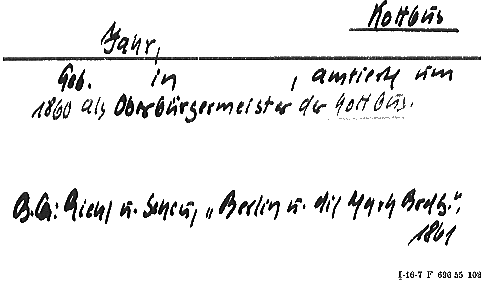 Kottbus
Jahr,
Geb. in , amtierte um
1860 als Oberbürgermeister der Kottbus.
B.G: Riehl u. Scheu, „Berlin u. die Mark Brdbg.",
1861
I-16-7 F 636 55 109